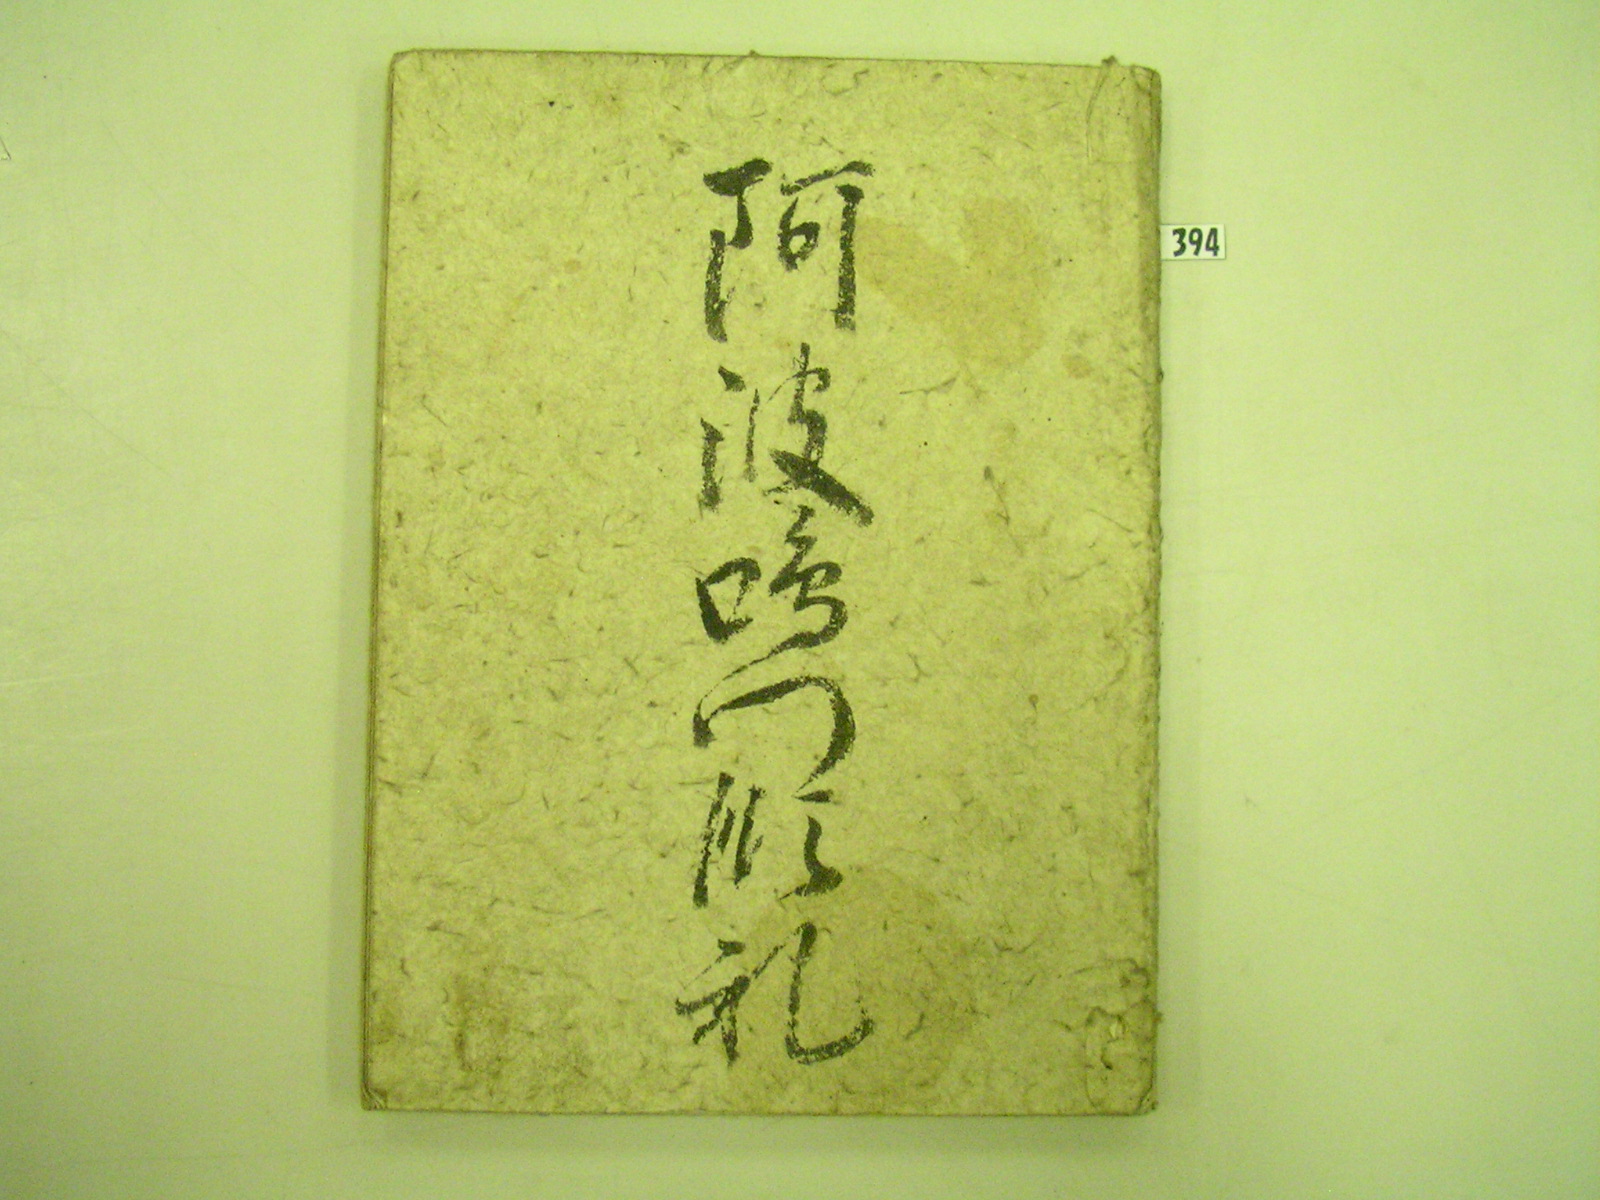 阿波鳴門順礼
394